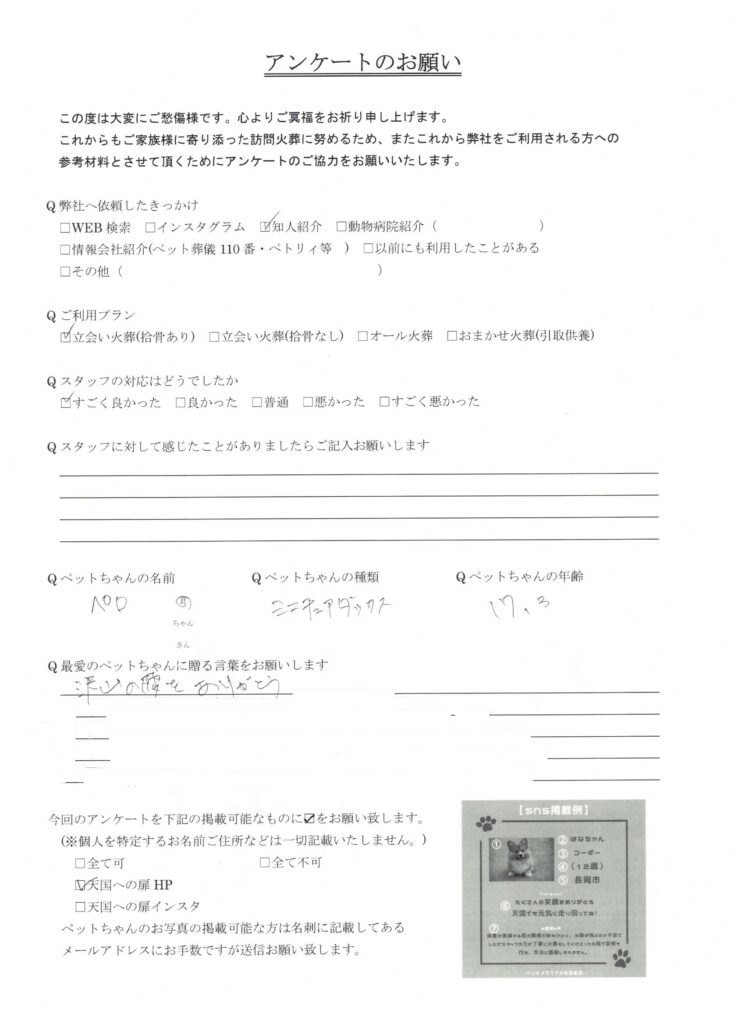 アンケートのお願い
この度は大変にご愁傷様です。心よりご冥福をお祈り申し上げます。
これからもご家族様に寄り添った訪問火葬に努めるため、またこれから弊社をご利用される方への
参考材料とさせて頂くためにアンケートのご協力をお願いいたします。
Q 弊社へ依頼したきっかけ
□WEB 検索 □インスタグラム ☑知人紹介 □動物病院紹介（ ）
□情報会社紹介(ペット葬儀 110 番・ペトリィ等 ) □以前にも利用したことがある
□その他（ ）
Q ご利用プラン
☑立会い火葬(拾骨あり) □立会い火葬(拾骨なし) □オール火葬 □おまかせ火葬(引取供養)
Q スタッフの対応はどうでしたか
☑すごく良かった □良かった □普通 □悪かった □すごく悪かった
Q スタッフに対して感じたことがありましたらご記入お願いします
Q ペットちゃんの名前 Q ペットちゃんの種類 Q ペットちゃんの年齢
ペロ 君 ミニチュアダックス 17.3
ちゃん
さん
Q 最愛のペットちゃんに贈る言葉をお願いします
沢山の愛をありがとう
今回のアンケートを下記の掲載可能なものに☑をお願い致します。
(※個人を特定するお名前ご住所などは一切記載いたしません。)
□全て可 □全て不可
☑天国への扉 HP
□天国への扉インスタ
ペットちゃんのお写真の掲載可能な方は名刺に記載してある
メールアドレスにお手数ですが送信お願い致します。
【sns掲載例】
① ② はなちゃん
③ コーギー
④ (12歳)
⑤ 長岡市
⑥ たくさんの笑顔をありがとう
天国でも元気に走り回ってね!
⑦